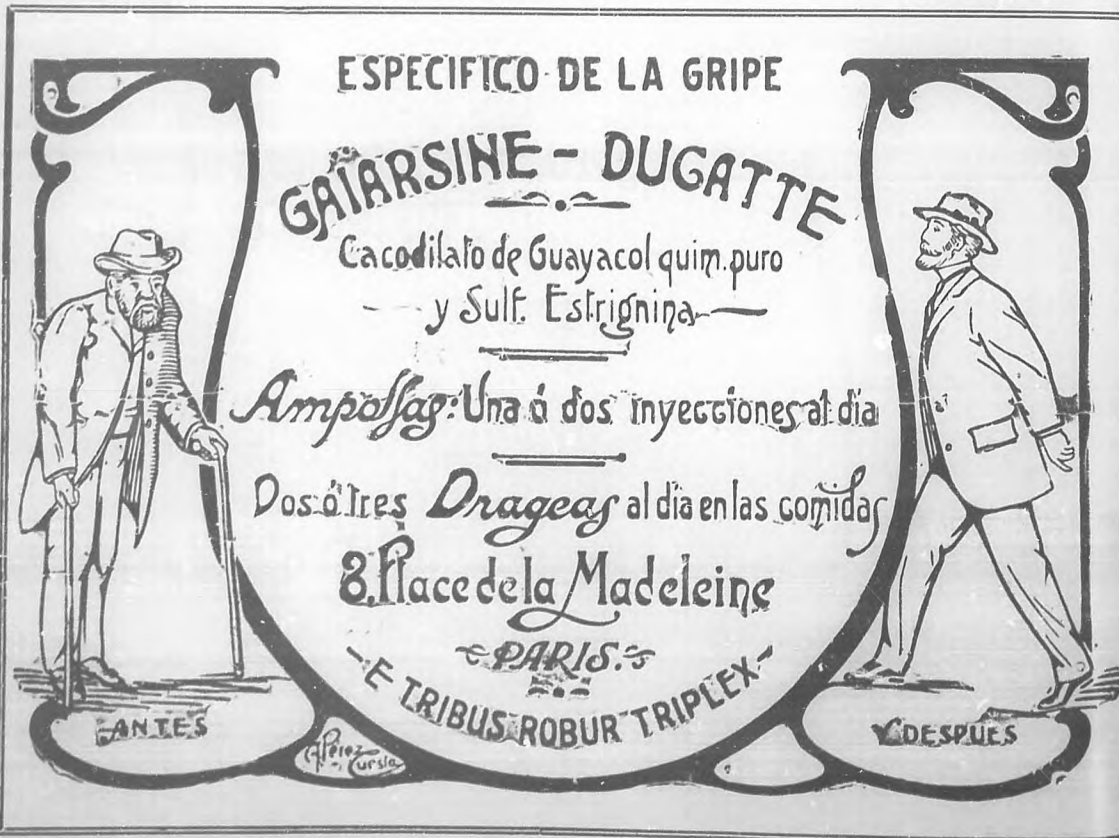 ESPECIFICO DE LA GRIPE
GAÏARSINE - DUGATTE
Cacodilato de Guayacol quim. puro
y Sulf. Estrignina
Ampollas: Una ó dos inyecciones al dia
Dos ó tres Drageas al dia en las comidas
8. Place de la Madeleine
PARIS.
E TRIBUS ROBUR TRIPLEX
ANTES
A. Pérez
Y DESPUES